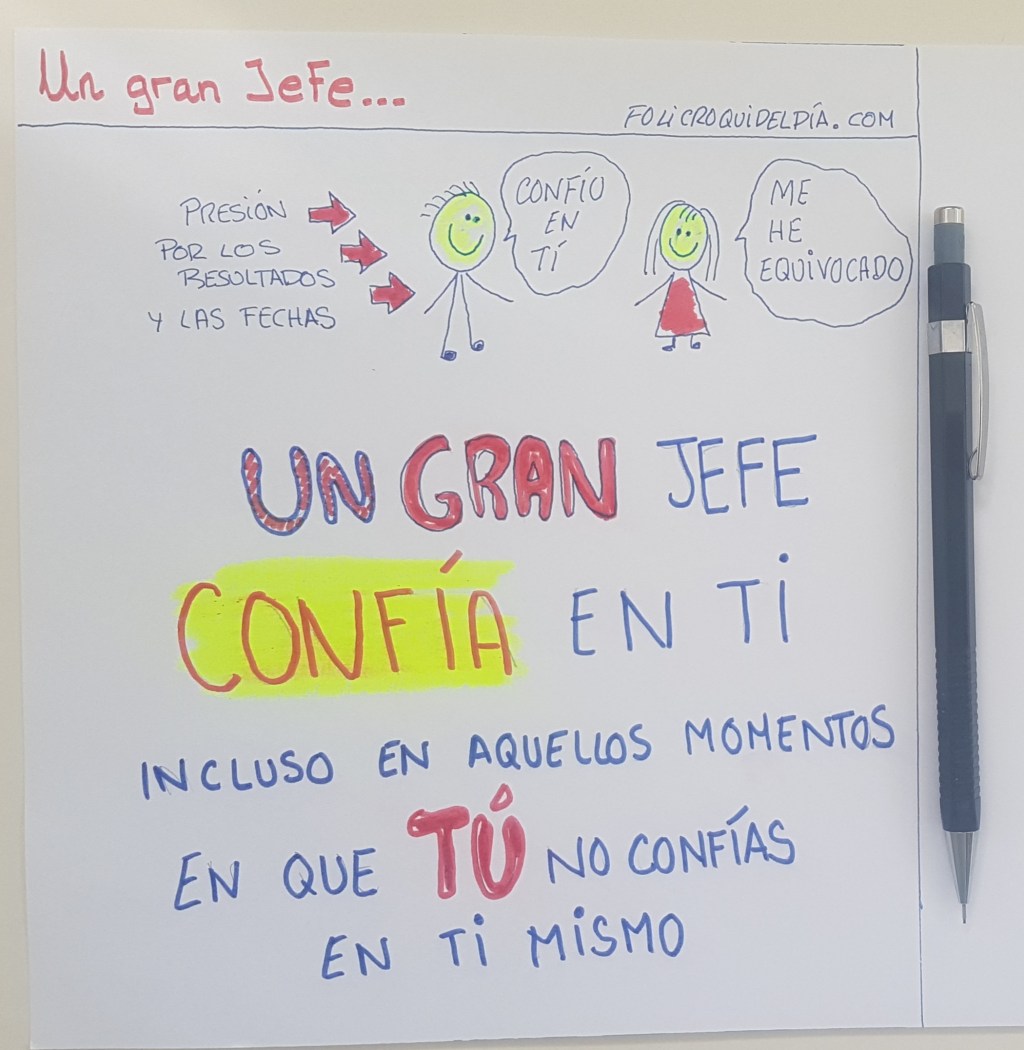 Un gran Jefe...
FOLICROQUIDELDÍA.COM
PRESIÓN
POR LOS
RESULTADOS
Y LAS FECHAS
CONFÍO
EN
TÍ
ME
HE
EQUIVOCADO
UN GRAN JEFE
CONFÍA EN TI
INCLUSO EN AQUELLOS MOMENTOS
EN QUE TÚ NO CONFÍAS
EN TI MISMO